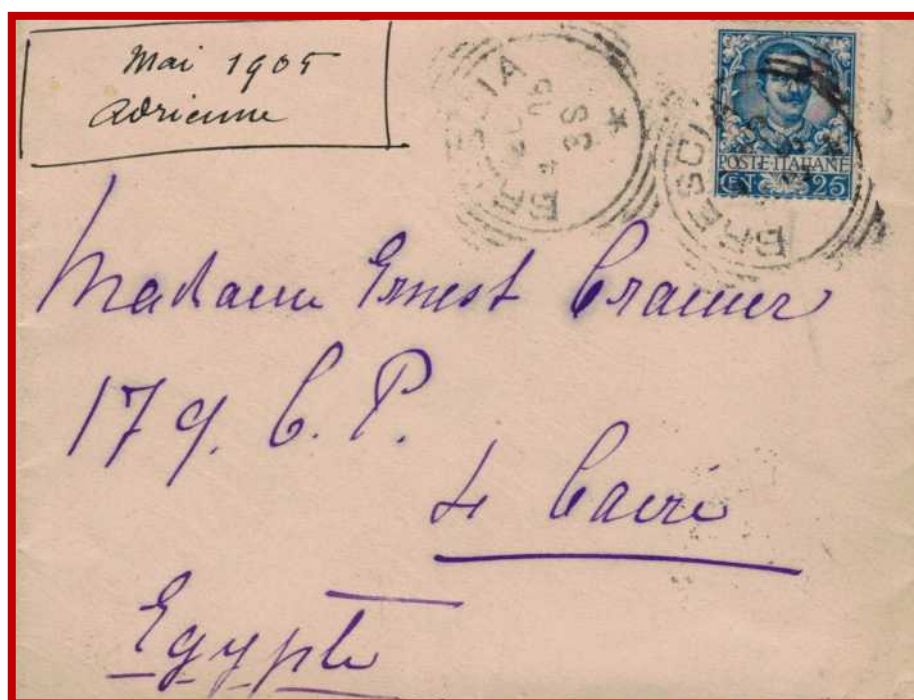 Mai 1905
Adrienne
BRESCIA
BRESCIA
POSTE·ITALIANE
CENT 25
Madame Ernest Cramer
179. B. P.
Le Caire
Egypte